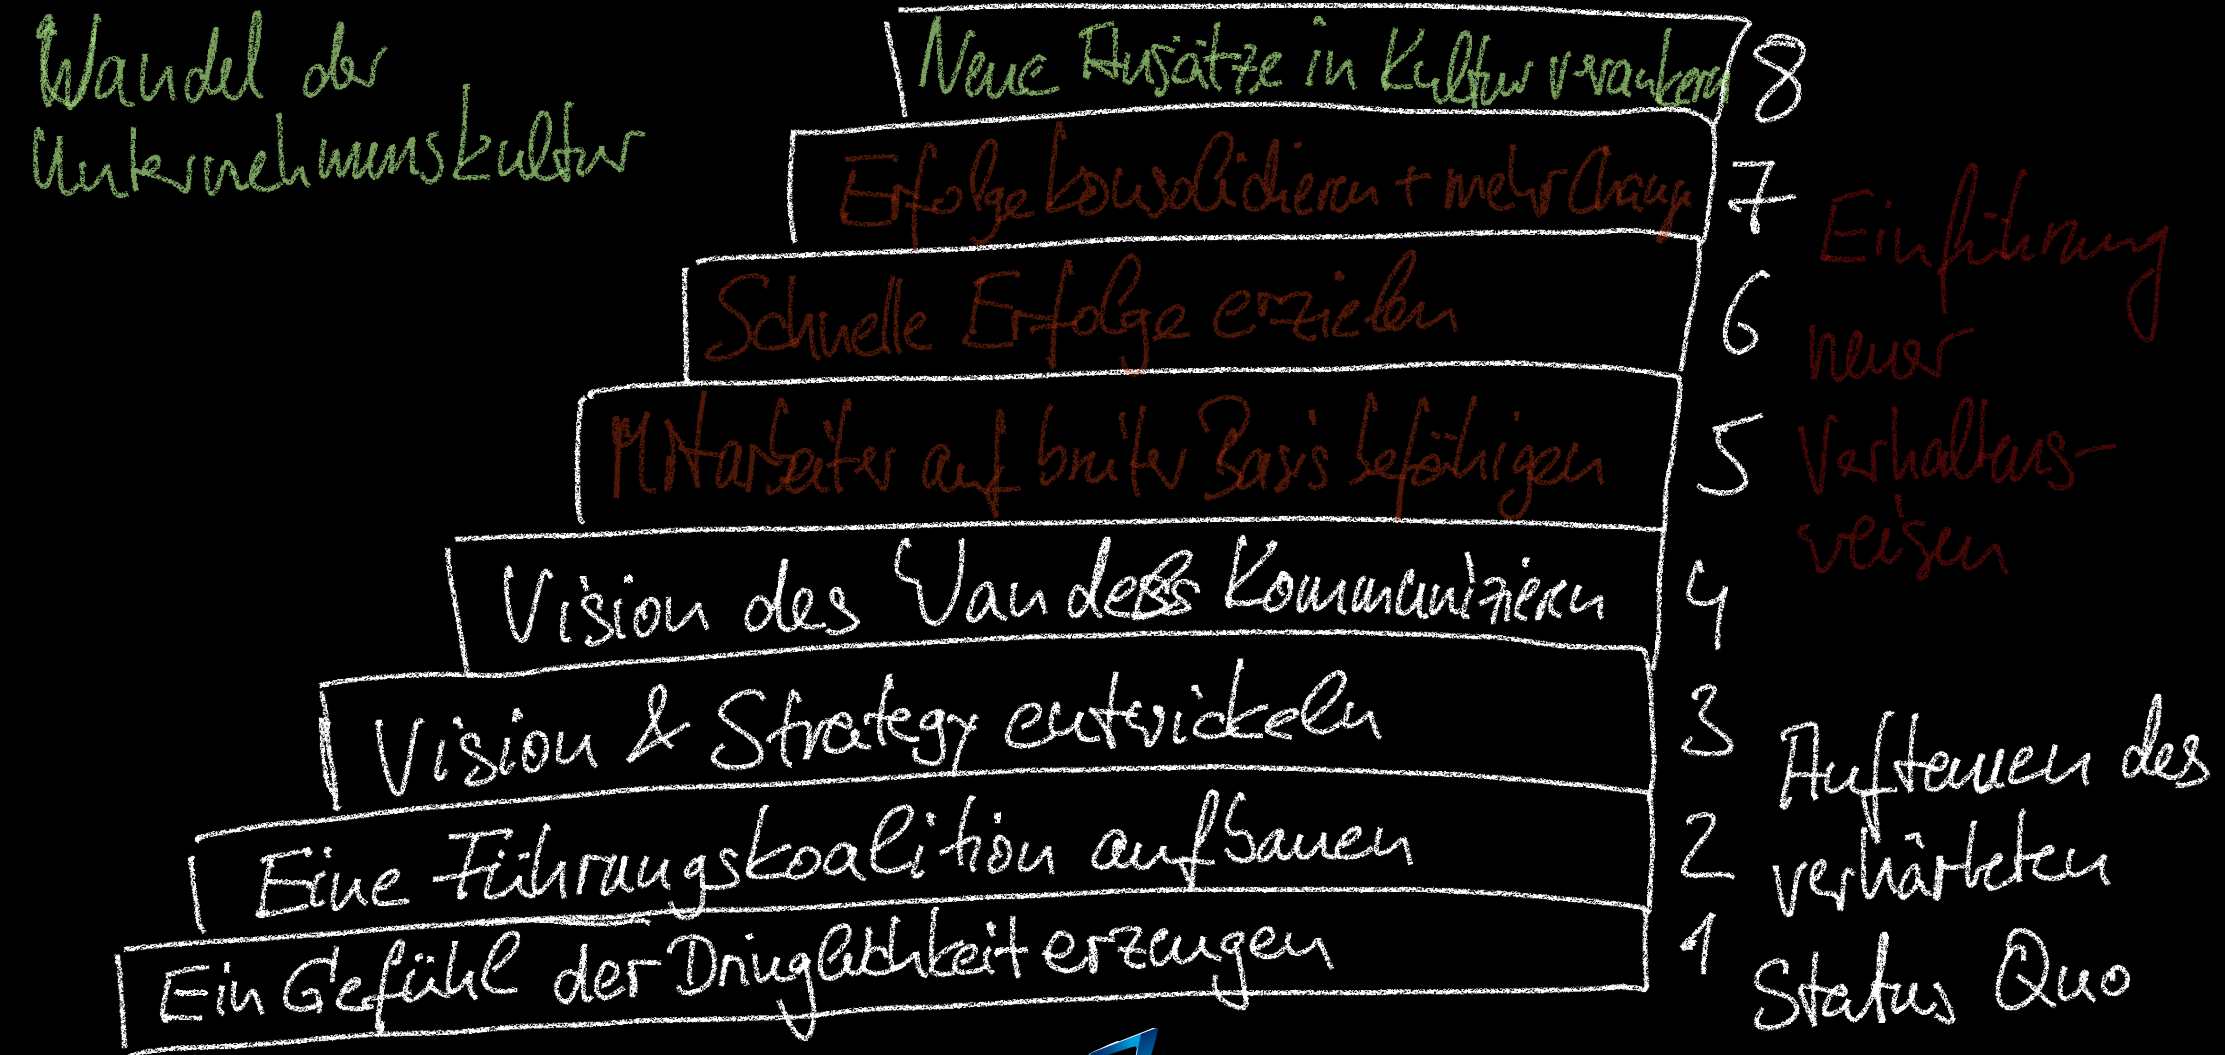 Wandel der
Unternehmenskultur
Neue Ansätze in Kultur verankern 8
Erfolge konsolidieren + mehr Change 7
Schnelle Erfolge erzielen 6
Mitarbeiter auf breiter Basis befähigen 5
Vision des Wandels kommunizieren 4
Vision & Strategy entwickeln 3
Eine Führungskoalition aufbauen 2
Ein Gefühl der Dringlichkeit erzeugen 1
Einführung
neuer
Verhaltens-
weisen
Auftauen des
verhärteten
Status Quo